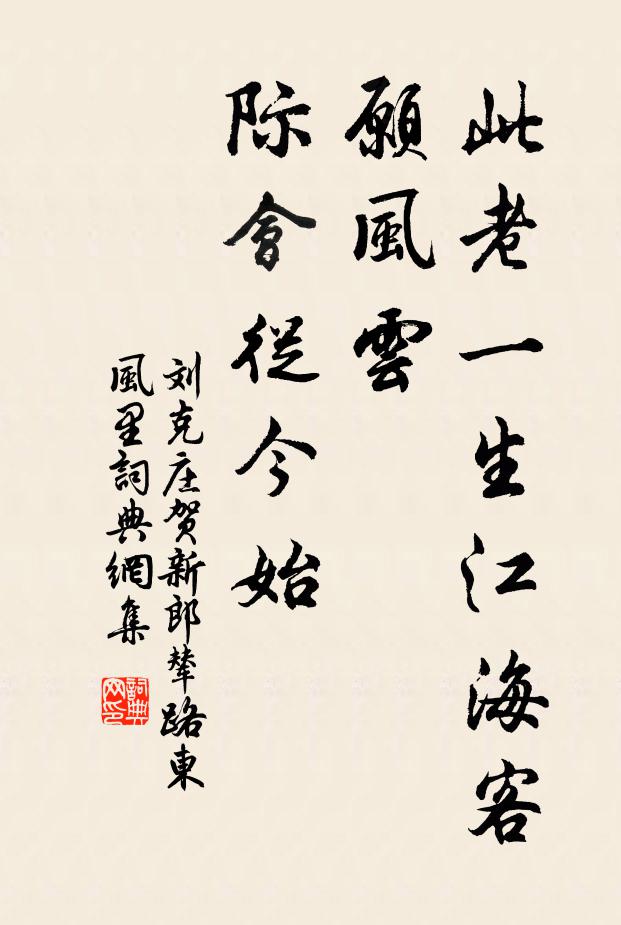 此老一生江海客
願風雲
际會從今始
刘克庄贺新郎辇路東
風里詞典網集
詞典
网印